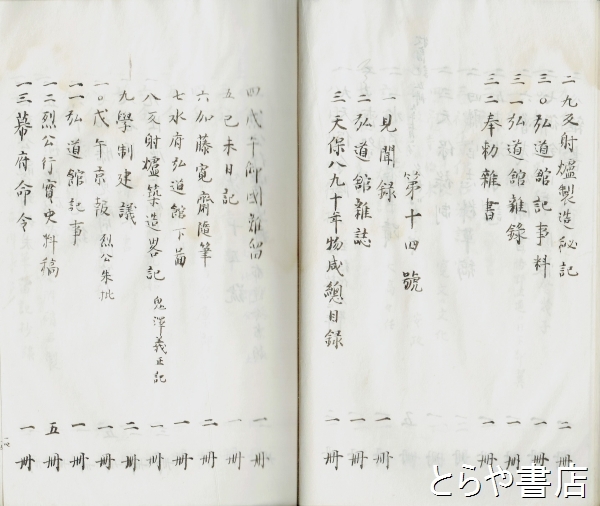 二九反射爐製造秘記 二冊
三〇弘道館記事料 一冊
三一弘道館雜錄 一冊
三二奉勅雜書 一冊
第十四號
一見聞録 一冊
二弘道館雜誌 一冊
三天保八九十年物成總目録 一冊
四戊午御国難留 一冊
五己未日記 一冊
六加藤寛齋隨筆 二冊
七水府弘道館下圖 一冊
八反射爐築造畧記 鬼澤義正記 一冊
九學制建議 二冊
一〇戊午京報 烈公朱批 一冊
一一弘道館記事 一冊
一二烈公行實史料稿 五冊
一三幕府命令 一冊
とらや書店